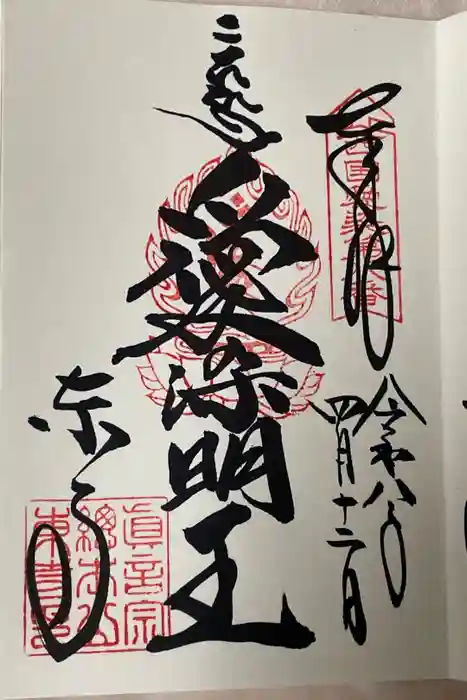 奉拝
令和八年
四月十二日
愛染明王
東寺
真言宗
総本山
東寺印